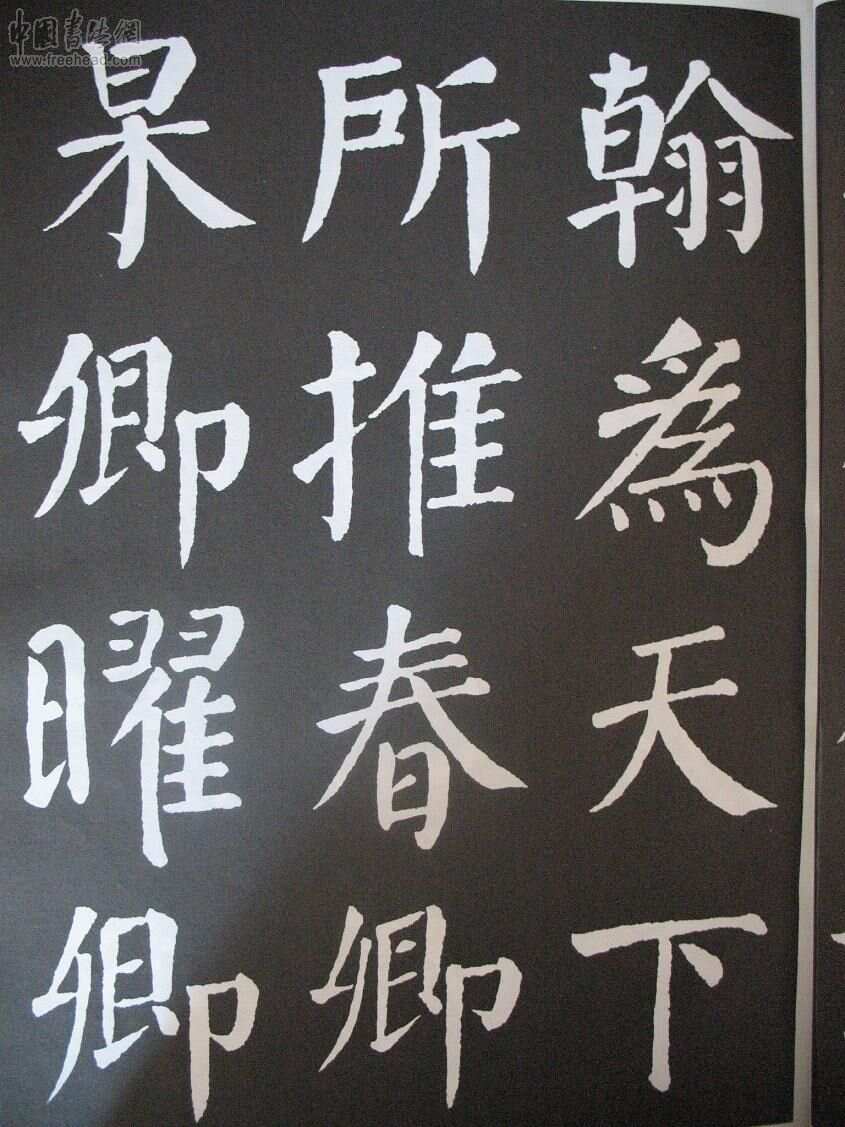 翰為天下
所推春卿
杲卿曜卿
中国书法網
www.freehead.com